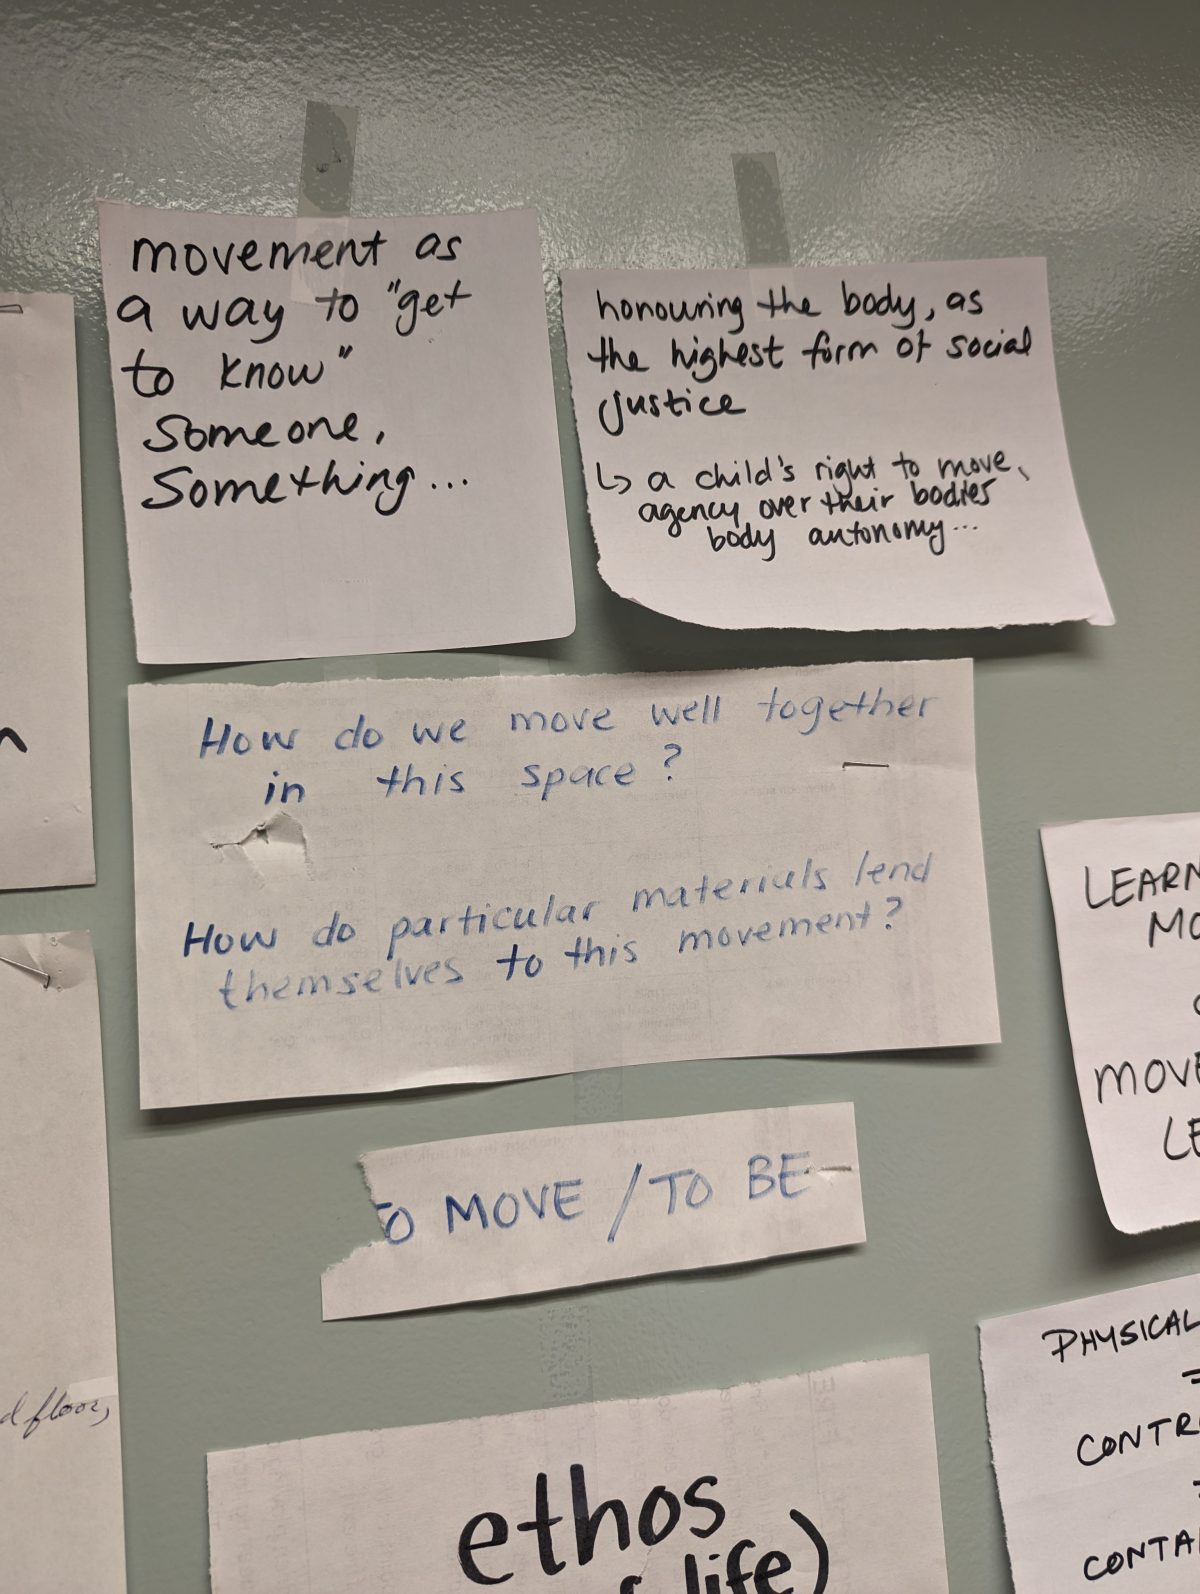 movement as
a way to "get
to know"
someone,
something...
honouring the body, as
the highest form of social
justice
↳ a child's right to move,
agency over their bodies
body autonomy...
How do we move well together
in this space?
How do particular materials lend
themselves to this movement?
O MOVE / TO BE
ethos
life)
LEARN
MO
MOVE
LE
PHYSICAL
=
CONTR
CONTA
d floor,